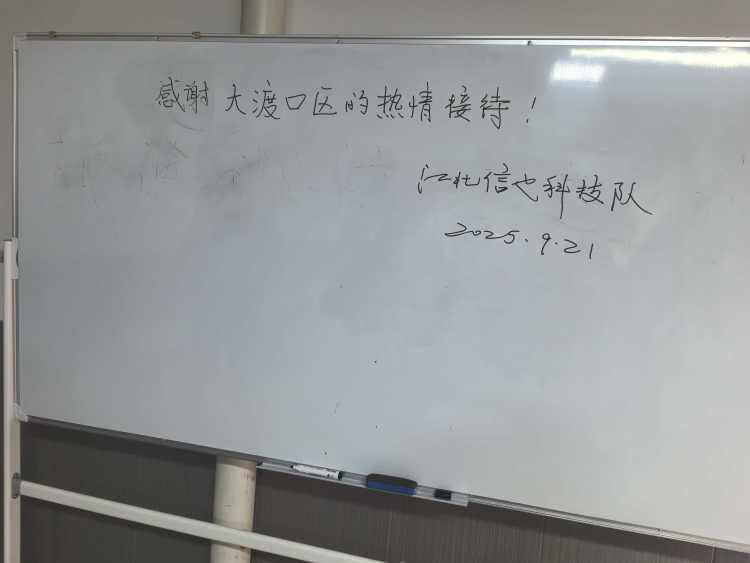 感谢大渡口区的热情接待！
江北信也科技队
2025.9.21